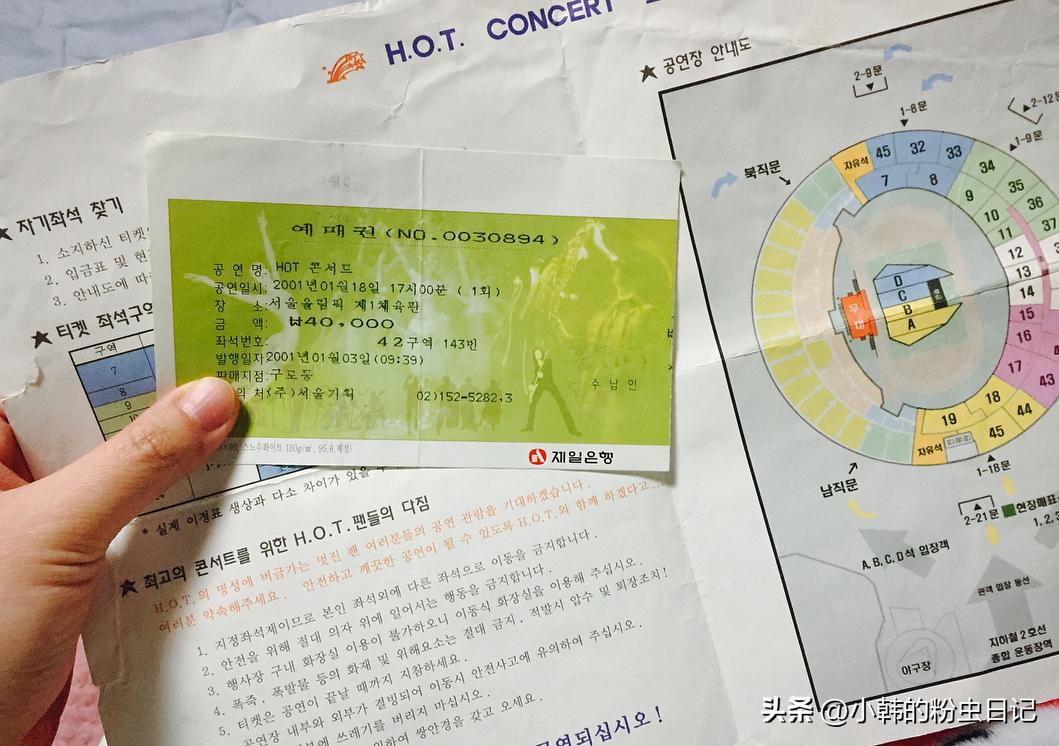 H.O.T. CONCERT
★ 자기좌석 찾기
1. 소지하신 티켓
2. 입금표 및 현
3. 안내도에 따
★ 티켓 좌석구역
구역
7
8
9
10
예 매 권 (NO.0030894)
공 연 명: HOT 콘서트
공연일시: 2001년01월18일 17시00분 ( 1회)
장 소:서울올림픽 제1체육관
금 액: ₩40,000
좌석번호: 42구역 143번
발행일자2001년01월03일(09:39)
판매지점:구로동
의 처(주)서울기획 02)152-5282,3
수 납 인
×90, 스노우화이트 180g/㎡, 95.6. 제성)
제일은행
* 실제 이정표 생상과 다소 차이가 있을 수
★ 최고의 콘서트를 위한 H.O.T. 팬들의 다짐
H.O.T.의 명성에 버금가는 멋진 팬 여러분들의 공연 관람을 기대하겠습니다.
여러분 약속해주세요. 안전하고 깨끗한 공연이 될 수 있도록 H.O.T.와 함께 하겠다고...
1. 지정좌석제이므로 본인 좌석외에 다른 좌석으로 이동을 금지합니다.
2. 안전을 위해 절대 의자 위에 일어서는 행동을 금지합니다.
3. 행사장 구내 화장실 이용이 불가하오니 이동식 화장실을 이용해 주십시오.
4. 폭죽, 폭발물 등의 화재 및 위해요소는 절대 금지, 적발시 압수 및 퇴장조치!
5. 티켓은 공연이 끝날 때까지 지참하세요.
공연장 내부와 외부가 결빙되어 이동시 안전사고에 유의하여 주십시오.
부에 쓰레기를 버리지 마십시오.
위하여 쌍안경을 갖고 오세요.
되십시오!
★ 공연장 안내도
2-9문
1-8문
2-12문
1-9문
북직문
자유석
45
32
33
34
35
36
37
7
8
9
10
11
12
13
14
15
16
17
18
19
43
44
45
자유석
무대
D
C
B
A
남직문
1-18문
2-21문
현장매표
1, 2, 3
A, B, C, D석 입장객
관객 입장 동선
지하철 2호선
종합 운동장역
야구장
头条 @小韩的粉虫日记